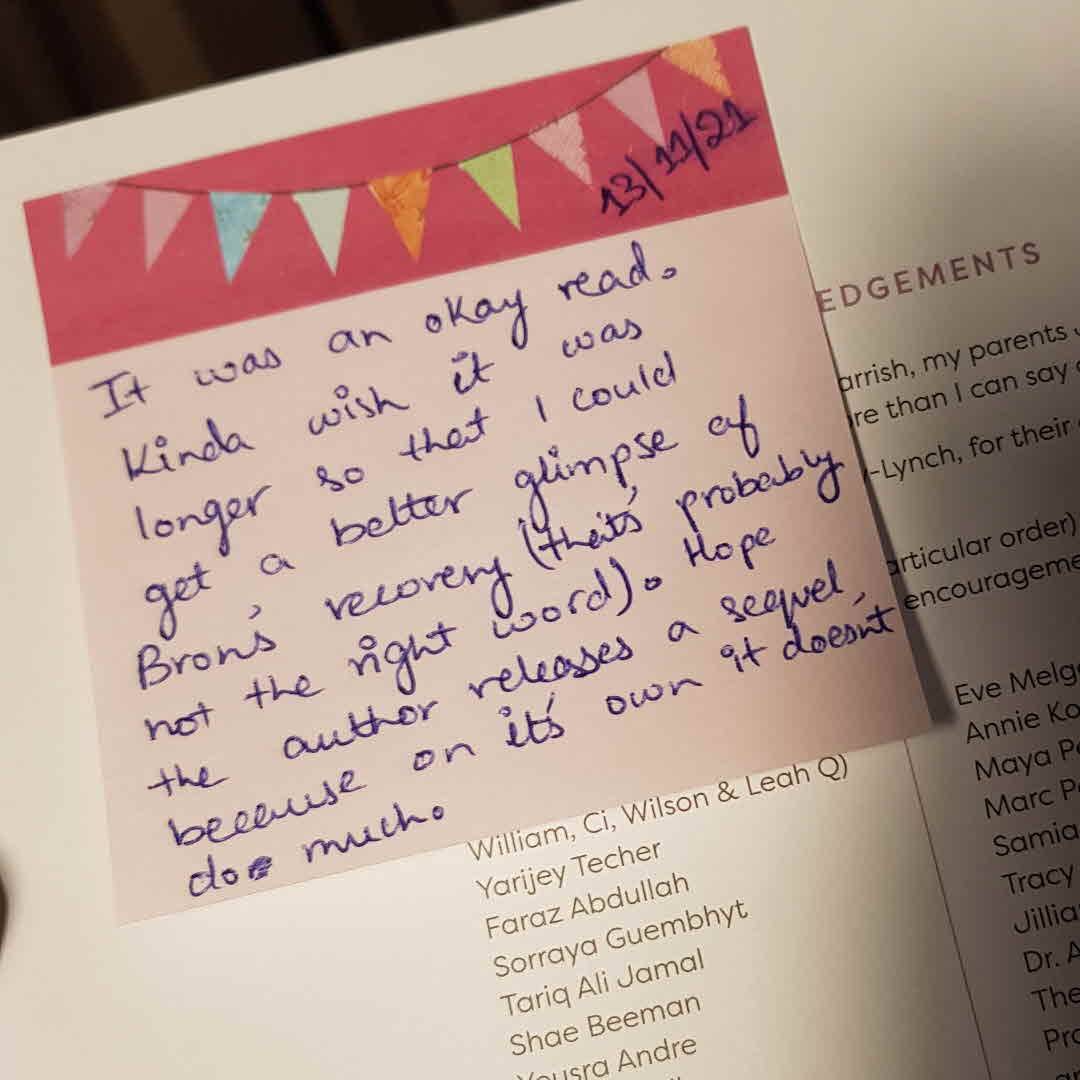 13/11/21
It was an okay read.
Kinda wish it was
longer so that I could
get a better glimpse of
Bron's recovery (that's probably
not the right word). Hope
the author releases a sequel,
because on it's own it doesn't
do much.
EDGEMENTS
arrish, my parents
re than I can say
-Lynch, for their
articular order)
encourageme
Eve Melg
Annie Ko
Maya P
Marc P
Samia
Tracy
Jillia
Dr. A
The
Pro
William, Ci, Wilson & Leah Q)
Yarijey Techer
Faraz Abdullah
Sorraya Guembhyt
Tariq Ali Jamal
Shae Beeman
Yousra Andre